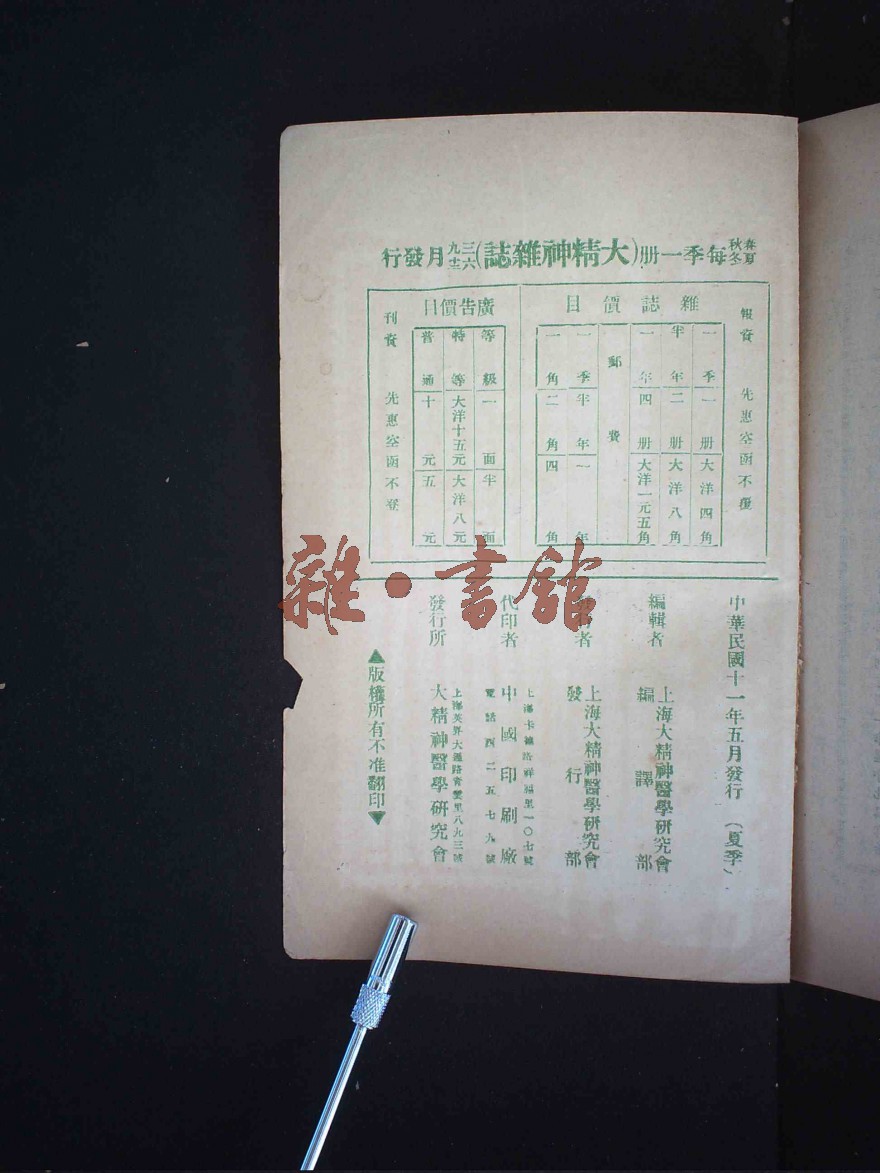 春夏秋冬每季一册(大精神雜誌)三六九十二月發行
報資 先惠空函不覆
雜誌價目
一季 一册 大洋四角
半年 二册 大洋八角
一年 四册 大洋一元五角
郵費
一季 半年 一年
一角 二角 四角
廣告價目
等級 一面 半面
特等 大洋十五元 大洋八元
普通 十元 五元
刊資 先惠空函不登
中華民國十一年五月發行 (夏季)
編輯者 上海大精神醫學研究會編譯部
者 上海大精神醫學研究會發行部
上海卡德路祥福里一〇七號
代印者 中國印刷廠
電話西二五七九號
上海英界大通路青雲里八九三號
發行所 大精神醫學研究會
▲版權所有不准翻印▼
雜·書館